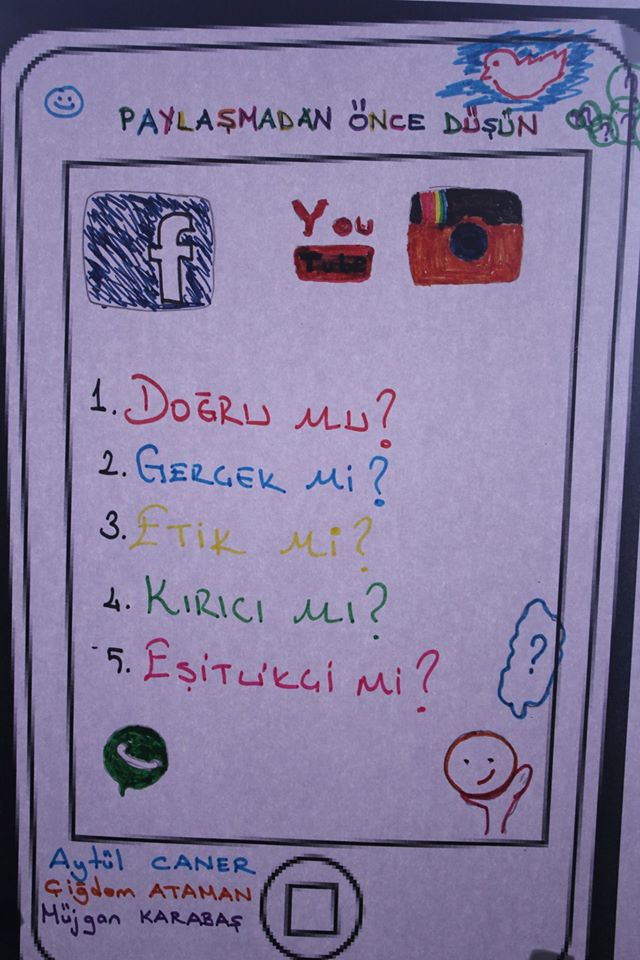 PAYLAŞMADAN ÖNCE DÜŞÜN
f
You
Tube
1. DOĞRU MU?
2. GERCEK Mi?
3. ETiK Mi?
4. KIRICI MI?
5. EŞiTLiKCi Mi?
?
Aytül CANER
Çiğdem ATAMAN
Müjgan KARABAŞ